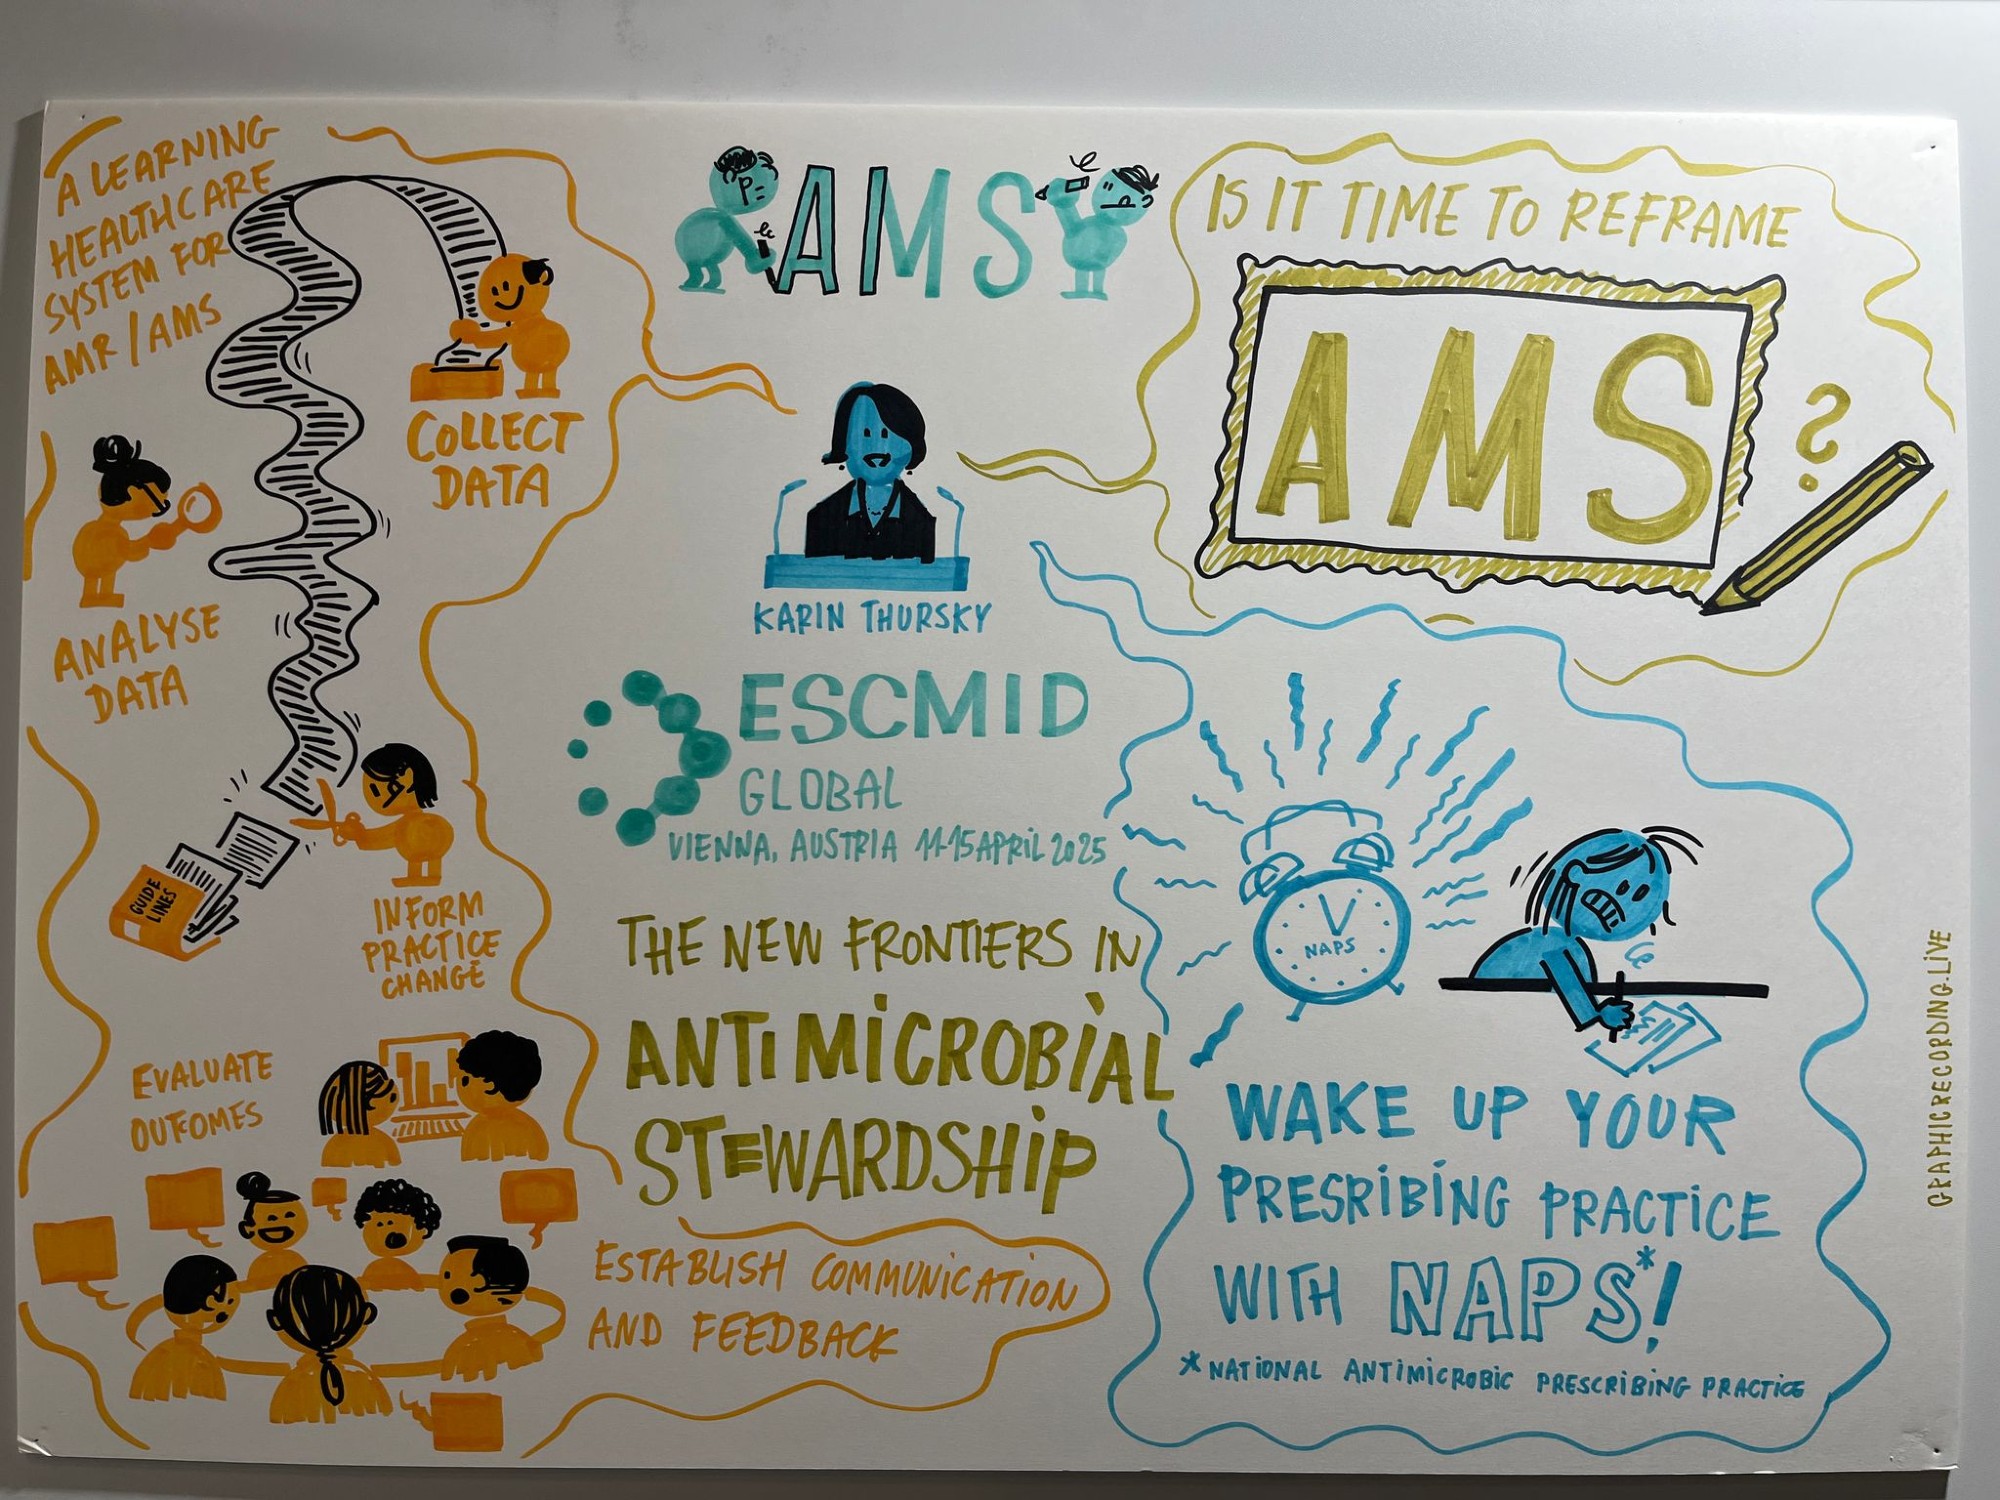 A LEARNING
HEALTHCARE
SYSTEM FOR
AMR / AMS
COLLECT
DATA
ANALYSE
DATA
GUIDE
LINES
INFORM
PRACTICE
CHANGE
EVALUATE
OUTCOMES
ESTABLISH COMMUNICATION
AND FEEDBACK
AMS
KARIN THURSKY
ESCMID
GLOBAL
VIENNA, AUSTRIA 11-15 APRIL 2025
THE NEW FRONTIERS IN
ANTIMICROBIAL
STEWARDSHIP
IS IT TIME TO REFRAME
AMS
?
NAPS
WAKE UP YOUR
PRESRIBING PRACTICE
WITH NAPS*!
*NATIONAL ANTIMICROBIC PRESCRIBING PRACTICE
GRAPHICRECORDING.LIVE